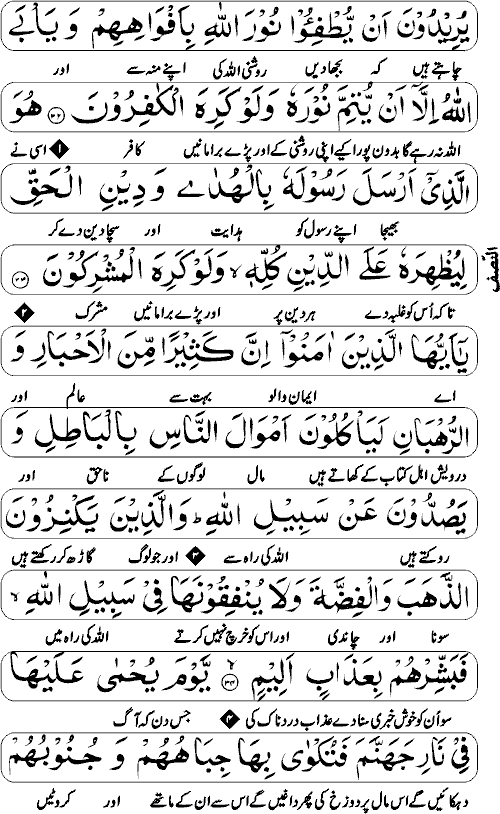 يُرِيْدُوْنَ اَنْ يُّطْفِـُٔوْا نُوْرَ اللّٰهِ بِاَفْوَاهِهِمْ وَ يَاْبَى
چاہتے ہیں کہ بجھادیں روشنی اللہ کی اپنے منہ سے اور
اللّٰهُ اِلَّاۤ اَنْ يُّتِمَّ نُوْرَهٗ وَلَوْ كَرِهَ الْكٰفِرُوْنَ ۳۲ هُوَ
اللہ نہ رہے گا بدون پورا کیے اپنی روشنی کے اور پڑے برا مانیں کافر ۱ اسی نے
الَّذِيْۤ اَرْسَلَ رَسُوْلَهٗ بِالْهُدٰى وَ دِيْنِ الْحَقِّ
بھیجا اپنے رسول کو ہدایت اور سچا دین دے کر
لِيُظْهِرَهٗ عَلَى الدِّيْنِ كُلِّهٖ ۙ وَلَوْ كَرِهَ الْمُشْرِكُوْنَ ۳۳
النصف
تاکہ اُس کو غلبہ دے ہر دین پر اور پڑے برا مانیں مشرک ۲
يٰۤاَيُّهَا الَّذِيْنَ اٰمَنُوْۤا اِنَّ كَثِيْرًا مِّنَ الْاَحْبَارِ وَ
اے ایمان والو بہت سے عالم اور
الرُّهْبَانِ لَيَاْكُلُوْنَ اَمْوَالَ النَّاسِ بِالْبَاطِلِ وَ
درویش اہل کتاب کے کھاتے ہیں مال لوگوں کے ناحق اور
يَصُدُّوْنَ عَنْ سَبِيْلِ اللّٰهِ ؕ وَالَّذِيْنَ يَكْنِزُوْنَ
روکتے ہیں اللہ کی راہ سے ۳ اور جو لوگ گاڑھ کر رکھتے ہیں
الذَّهَبَ وَالْفِضَّةَ وَلَا يُنْفِقُوْنَهَا فِيْ سَبِيْلِ اللّٰهِ ۙ
سونا اور چاندی اور اس کو خرچ نہیں کرتے اللہ کی راہ میں
فَبَشِّرْهُمْ بِعَذَابٍ اَلِيْمٍ ۙ ۳۴ يَّوْمَ يُحْمٰى عَلَيْهَا
سو اُن کو خوش خبری سنا دے عذاب دردناک کی ۴ جس دن کہ آگ
فِيْ نَارِ جَهَنَّمَ فَتُكْوٰى بِهَا جِبَاهُهُمْ وَ جُنُوْبُهُمْ
دہکائیں گے اس مال پر دوزخ کی پھر داغیں گے اس سے ان کے ماتھے اور کروٹیں